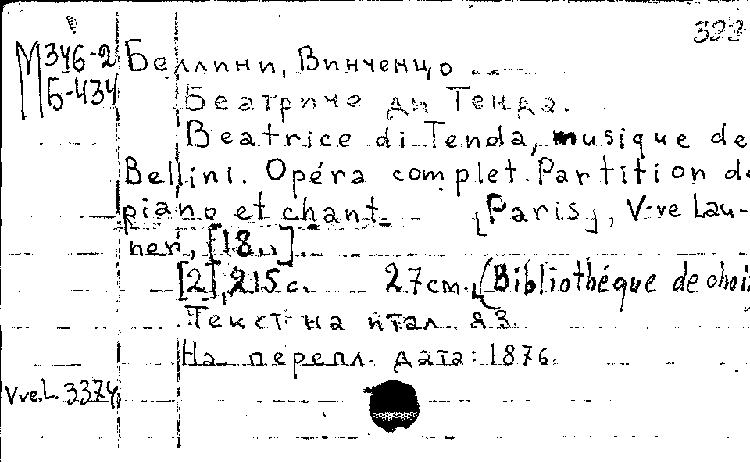 323
М 346-2 Беллини, Винченцо
Б-434 Беатриче ди Тенда.
Beatrice di Tenda, musique de
Bellini. Opéra complet. Partition de
piano et chant. [Paris], V-ve Lau-
ner, [18..].
[2], 215 с. 27 cm. (Bibliothéque de choi
Текст на итал. яз.
На перепл. дата: 1876.
Vve. L. 3374